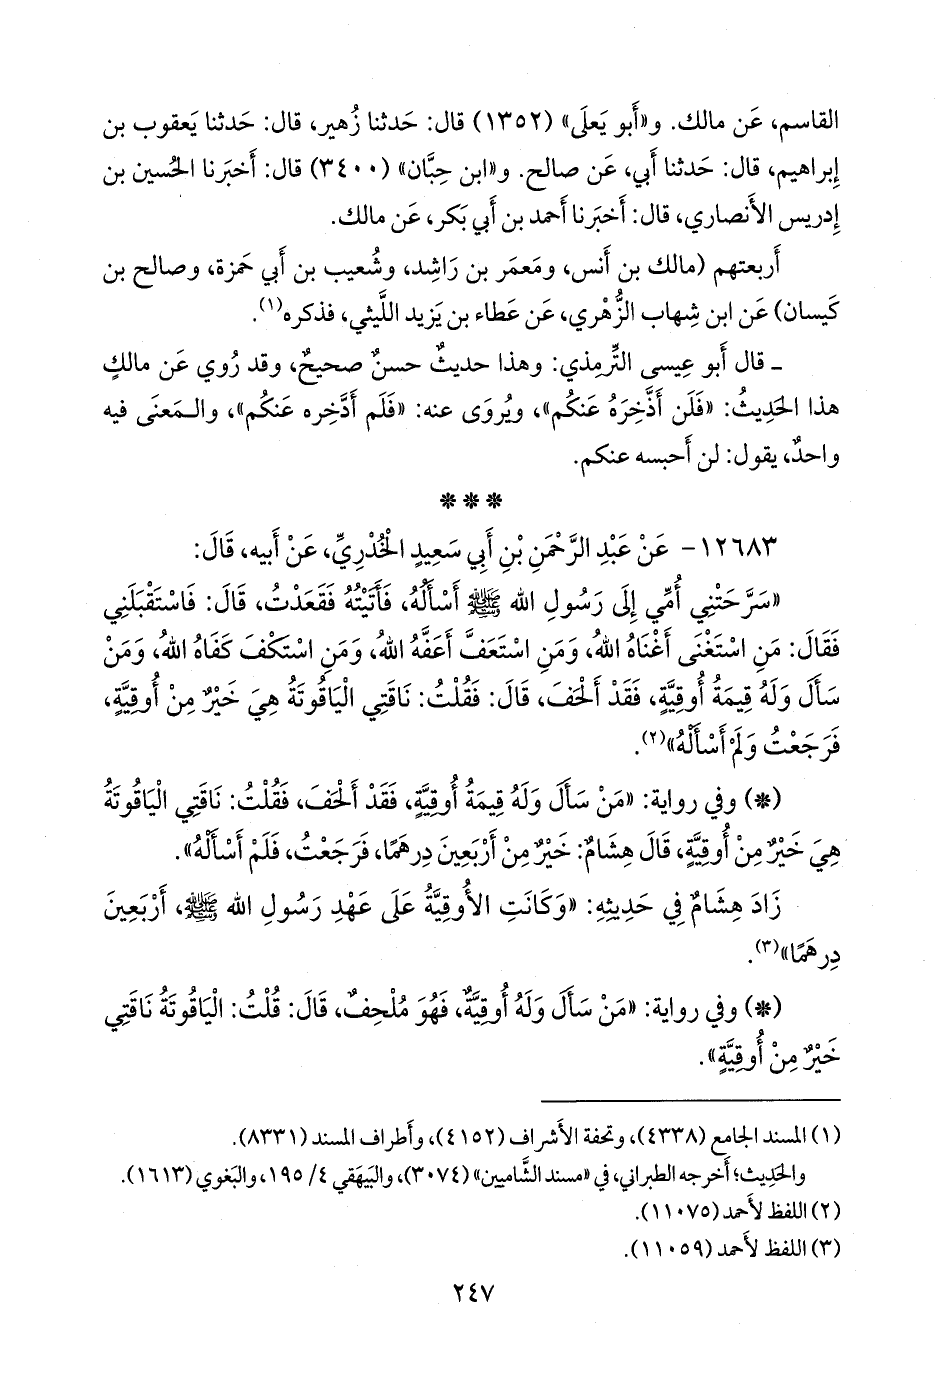 القاسم، عَن مالك. و«أَبو يَعلَى» (١٣٥٢) قال: حَدثنا زُهير، قال: حَدثنا يَعقوب بن
إِبراهيم، قال: حَدثنا أَبي، عَن صالح. و«ابن حِبَّان» (٣٤٠٠) قال: أَخبَرنا الحُسين بن
إِدريس الأَنصاري، قال: أَخبَرنا أَحمد بن أَبي بَكر، عَن مالك.
أَربعتهم (مالك بن أَنس، ومَعمَر بن رَاشِد، وشُعيب بن أَبي حَمزة، وصالح بن
كَيسان) عَن ابن شِهاب الزُّهْري، عَن عَطاء بن يَزيد اللَّيثي، فذكره(١).
ـ قال أَبو عِيسى التِّرمِذي: وهذا حديثٌ حسنٌ صحيحٌ، وقد رُوي عَن مالكٍ
هذا الحَدِيثُ: «فَلَن أَذَّخِرَهُ عَنكُم»، ويُروَى عنه: «فَلَم أَدَّخِره عَنكُم»، والـمَعنَى فيه
واحدٌ، يقول: لن أَحبسه عنكم.
* * *
١٢٦٨٣- عَنْ عَبْدِ الرَّحْمَنِ بْنِ أَبِي سَعِيدٍ الْخُدْرِيِّ، عَنْ أَبيه، قَالَ:
«سَرَّحَتْنِي أُمِّي إِلَى رَسُولِ الله ﷺ أَسْأَلُهُ، فَأَتَيْتُهُ فَقَعَدْتُ، قَالَ: فَاسْتَقْبَلَنِي
فَقَالَ: مَنِ اسْتَغْنَى أَغْنَاهُ اللهُ، وَمَنِ اسْتَعَفَّ أَعَفَّهُ اللهُ، وَمَنِ اسْتَكْفَ كَفَاهُ اللهُ، وَمَنْ
سَأَلَ وَلَهُ قِيمَةُ أُوقِيَّةٍ، فَقَدْ أَلْحَفَ، قَالَ: فَقُلْتُ: نَاقَتِي الْيَاقُوتَةُ هِيَ خَيْرٌ مِنْ أُوقِيَّةٍ،
فَرَجَعْتُ وَلَمْ أَسْأَلْهُ»(٢).
(*) وفي رواية: «مَنْ سَأَلَ وَلَهُ قِيمَةُ أُوقِيَّةٍ، فَقَدْ أَلْحَفَ، فَقُلْتُ: نَاقَتِي الْيَاقُوتَةُ
هِيَ خَيْرٌ مِنْ أُوقِيَّةٍ، قَالَ هِشَامٌ: خَيْرٌ مِنْ أَرْبَعِينَ دِرهَمًا، فَرَجَعْتُ، فَلَمْ أَسْأَلْهُ».
زَادَ هِشَامٌ فِي حَدِيثِهِ: «وَكَانَتِ الأُوقِيَّةُ عَلَى عَهْدِ رَسُولِ الله ﷺ، أَرْبَعِينَ
دِرهَمًا»(٣).
(*) وفي رواية: «مَنْ سَأَلَ وَلَهُ أُوقِيَّةٌ، فَهُوَ مُلْحِفٌ، قَالَ: قُلْتُ: الْيَاقُوتَةُ نَاقَتِي
خَيْرٌ مِنْ أُوقِيَّةٍ».
(١) المسند الجامع (٤٣٣٨)، وتحفة الأَشراف (٤١٥٢)، وأَطراف المسند (٨٣٣١).
والحَدِيث؛ أَخرجه الطبراني، في «مسند الشَّاميين» (٣٠٧٤)، والبَيهَقي ٤/ ١٩٥، والبَغوي (١٦١٣).
(٢) اللفظ لأَحمد (١١٠٧٥).
(٣) اللفظ لأَحمد (١١٠٥٩).
٢٤٧